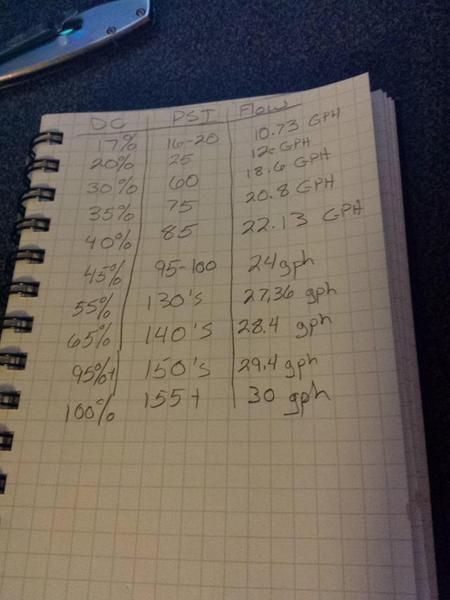 DC PSI Flow
17% 16-20 10.73 GPH
20% 25 12 GPH
30% 60 18.6 GPH
35% 75 20.8 GPH
40% 85 22.13 GPH
45% 95-100 24gph
55% 130's 27,36 gph
65% 140's 28.4 gph
95%+ 150's 29.4 gph
100% 155+ 30 gph